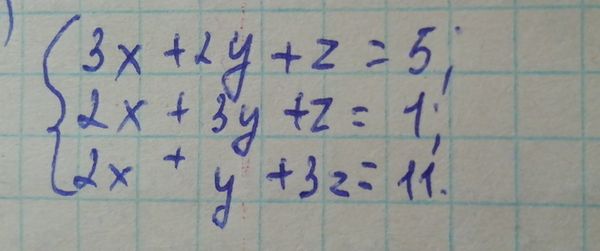 3x + 2y + z = 5;
2x + 3y + z = 1;
2x + y + 3z = 11.